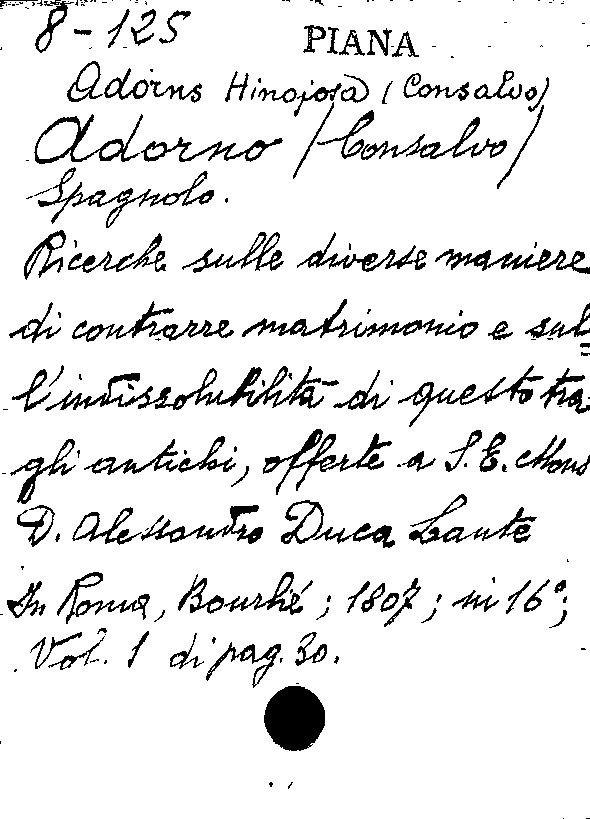 8-125 PIANA
Adorns Hinojosa (Consalvo)
Adorno (Consalvo)
Spagnolo.
Ricerche sulle diverse maniere
di contrarre matrimonio e sul
l'indissolubilità di questo tra
gli antichi, offerte a S. E. Mons
D. Alessandro Duca Lante
In Roma, Bourlié; 1807; in 16°;
Vol. 1 di pag. 30.